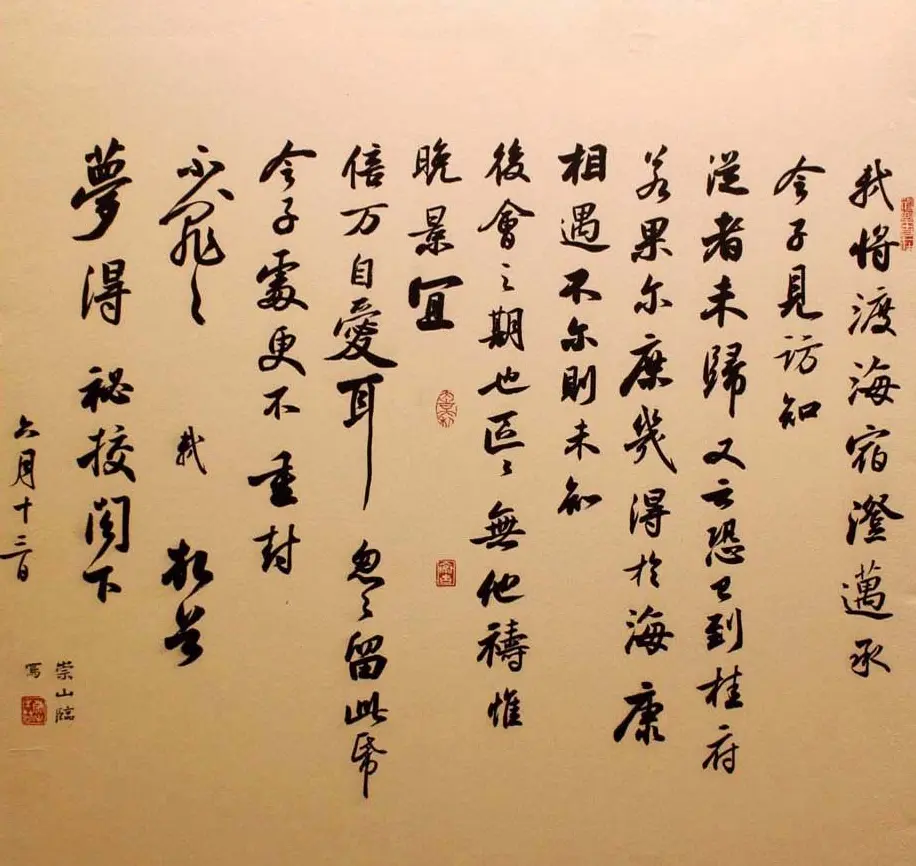 軾將渡海宿澄邁承
令子見訪知
從者未歸又云恐已到桂府
若果尔庶幾得於海康
相遇不尔則未知
後會之期也區〻無他禱惟
晚景宜
倍万自愛耳忽〻留此帋
令子處更不重封
不罪〻〻 軾 頓首
夢得 祕挍閣下
六月十三日
崇山臨
寫